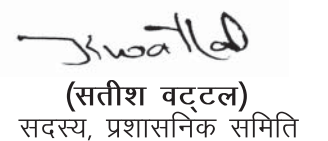 (सतीश वट्टल)
सदस्य, प्रशासनिक समिति